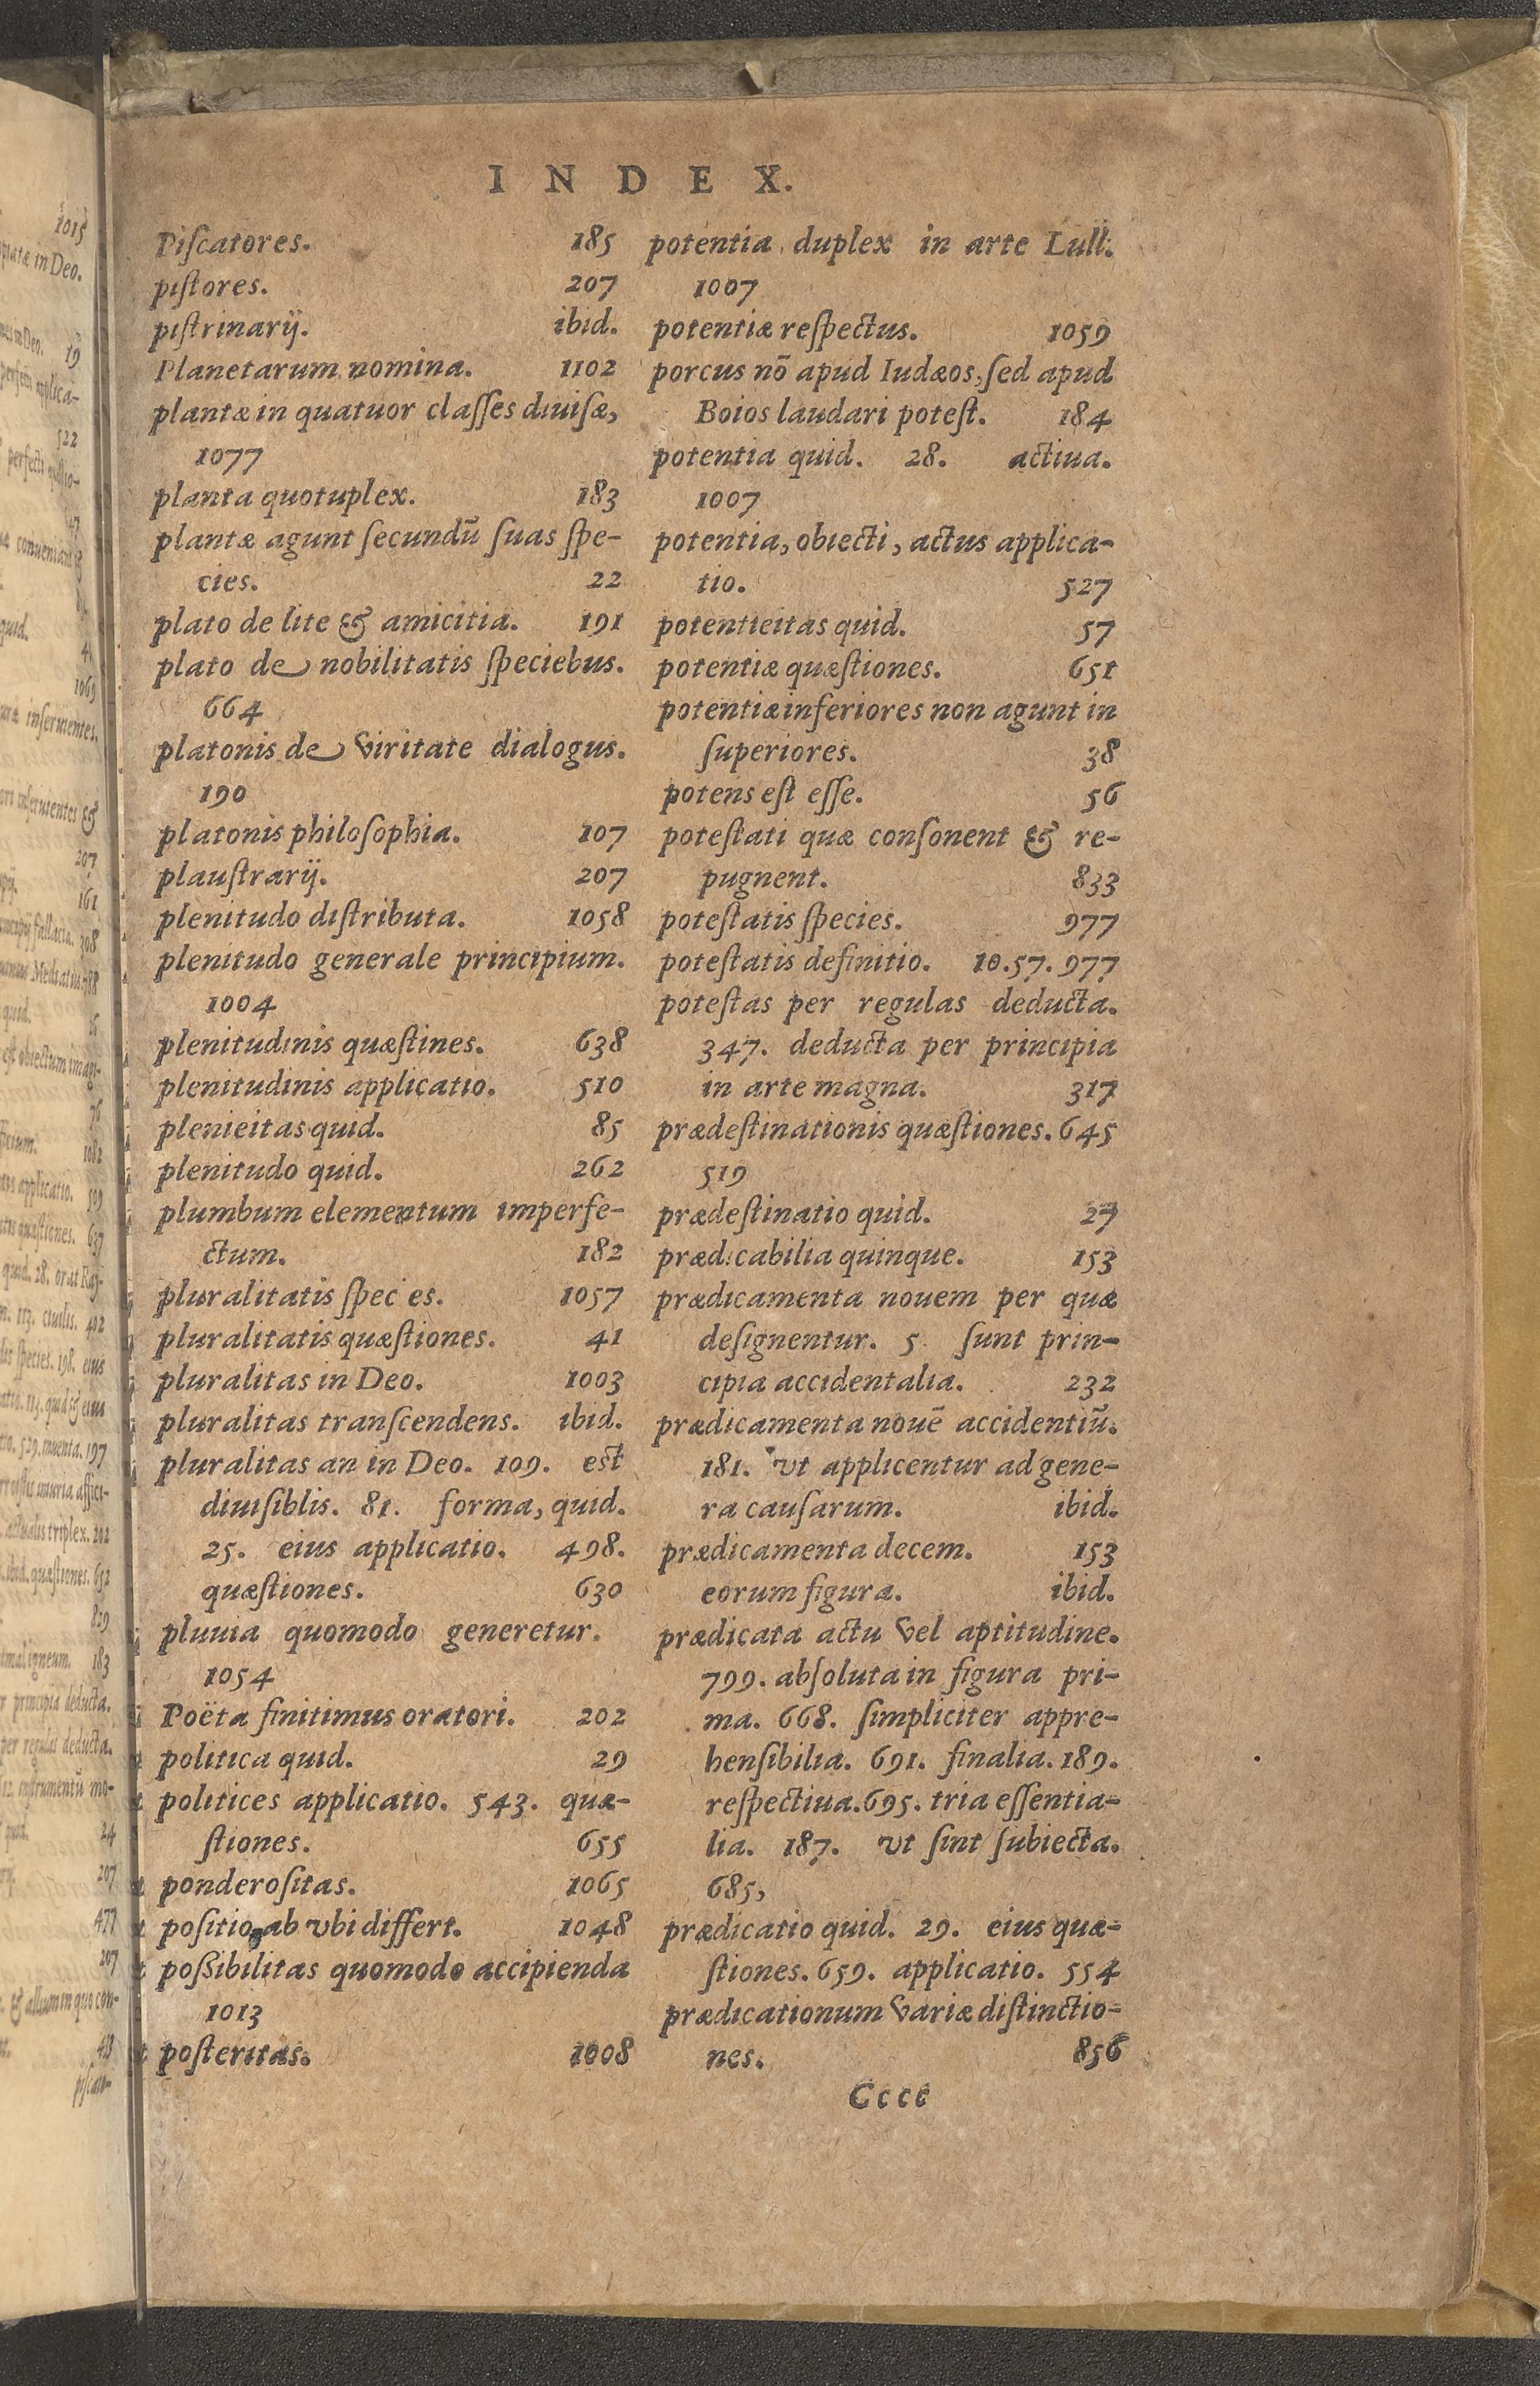 INDEX.
Piſcatores. 185
piſtores. 207
piſtrinarij. ibid.
Planetarum nomina. 1102
plantæ in quatuor claſſes diuiſæ,
1077
planta quotuplex. 183
plantæ agunt ſecundū ſuas ſpe-
cies. 22
plato de lite & amicitia. 191
plato de nobilitatis ſpeciebus.
664
platonis de viritate dialogus.
190
platonis philoſophia. 107
plauſtrarij. 207
plenitudo diſtributa. 1058
plenitudo generale principium.
1004
plenitudinis quæſtines. 638
plenitudinis applicatio. 510
plenieitas quid. 85
plenitudo quid. 262
plumbum elementum imperfe-
ctum. 182
pluralitatis ſpec es. 1057
pluralitatis quæſtiones. 41
pluralitas in Deo. 1003
pluralitas tranſcendens. ibid.
pluralitas an in Deo. 109. est
diuiſiblis. 81. forma, quid.
25. eius applicatio. 498.
quæſtiones. 630
pluuia quomodo generetur.
1054
Poëta finitimus oratori. 202
politica quid. 29
politices applicatio. 543. quæ-
ſtiones. 655
ponderoſitas. 1065
poſitio ab vbi differt. 1048
poſſibilitas quomodo accipienda
1013
poſteritas. 1008
potentia duplex in arte Lull.
1007
potentiæ reſpectus. 1059
porcus nō apud Iudæos, ſed apud
Boios laudari poteſt. 184
potentia quid. 28. actiua.
1007
potentia, obiecti, actus applica-
tio. 527
potentieitas quid. 57
potentiæ quæſtiones. 651
potentiæ inferiores non agunt in
ſuperiores. 38
potens eſt eſſe. 56
poteſtati quæ conſonent & re-
pugnent. 833
poteſtatis ſpecies. 977
poteſtatis definitio. 10.57.977
poteſtas per regulas deducta.
347. deducta per principia
in arte magna. 317
prædeſtinationis quæſtiones. 645
519
prædeſtinatio quid. 27
prædicabilia quinque. 153
prædicamenta nouem per quæ
deſignentur. 5 ſunt prin-
cipia accidentalia. 232
prædicamenta nouē accidentiū.
181. vt applicentur ad gene-
ra cauſarum. ibid.
prædicamenta decem. 153
eorum figura. ibid.
prædicata actu vel aptitudine.
799. abſoluta in figura pri-
ma. 668. ſimpliciter appre-
henſibilia. 691. finalia. 189.
reſpectiua. 695. tria eſſentia-
lia. 187. vt ſint ſubiecta.
685,
prædicatio quid. 29. eius quæ-
ſtiones. 659. applicatio. 554
prædicationum variæ diſtinctio-
nes. 856
Cccc